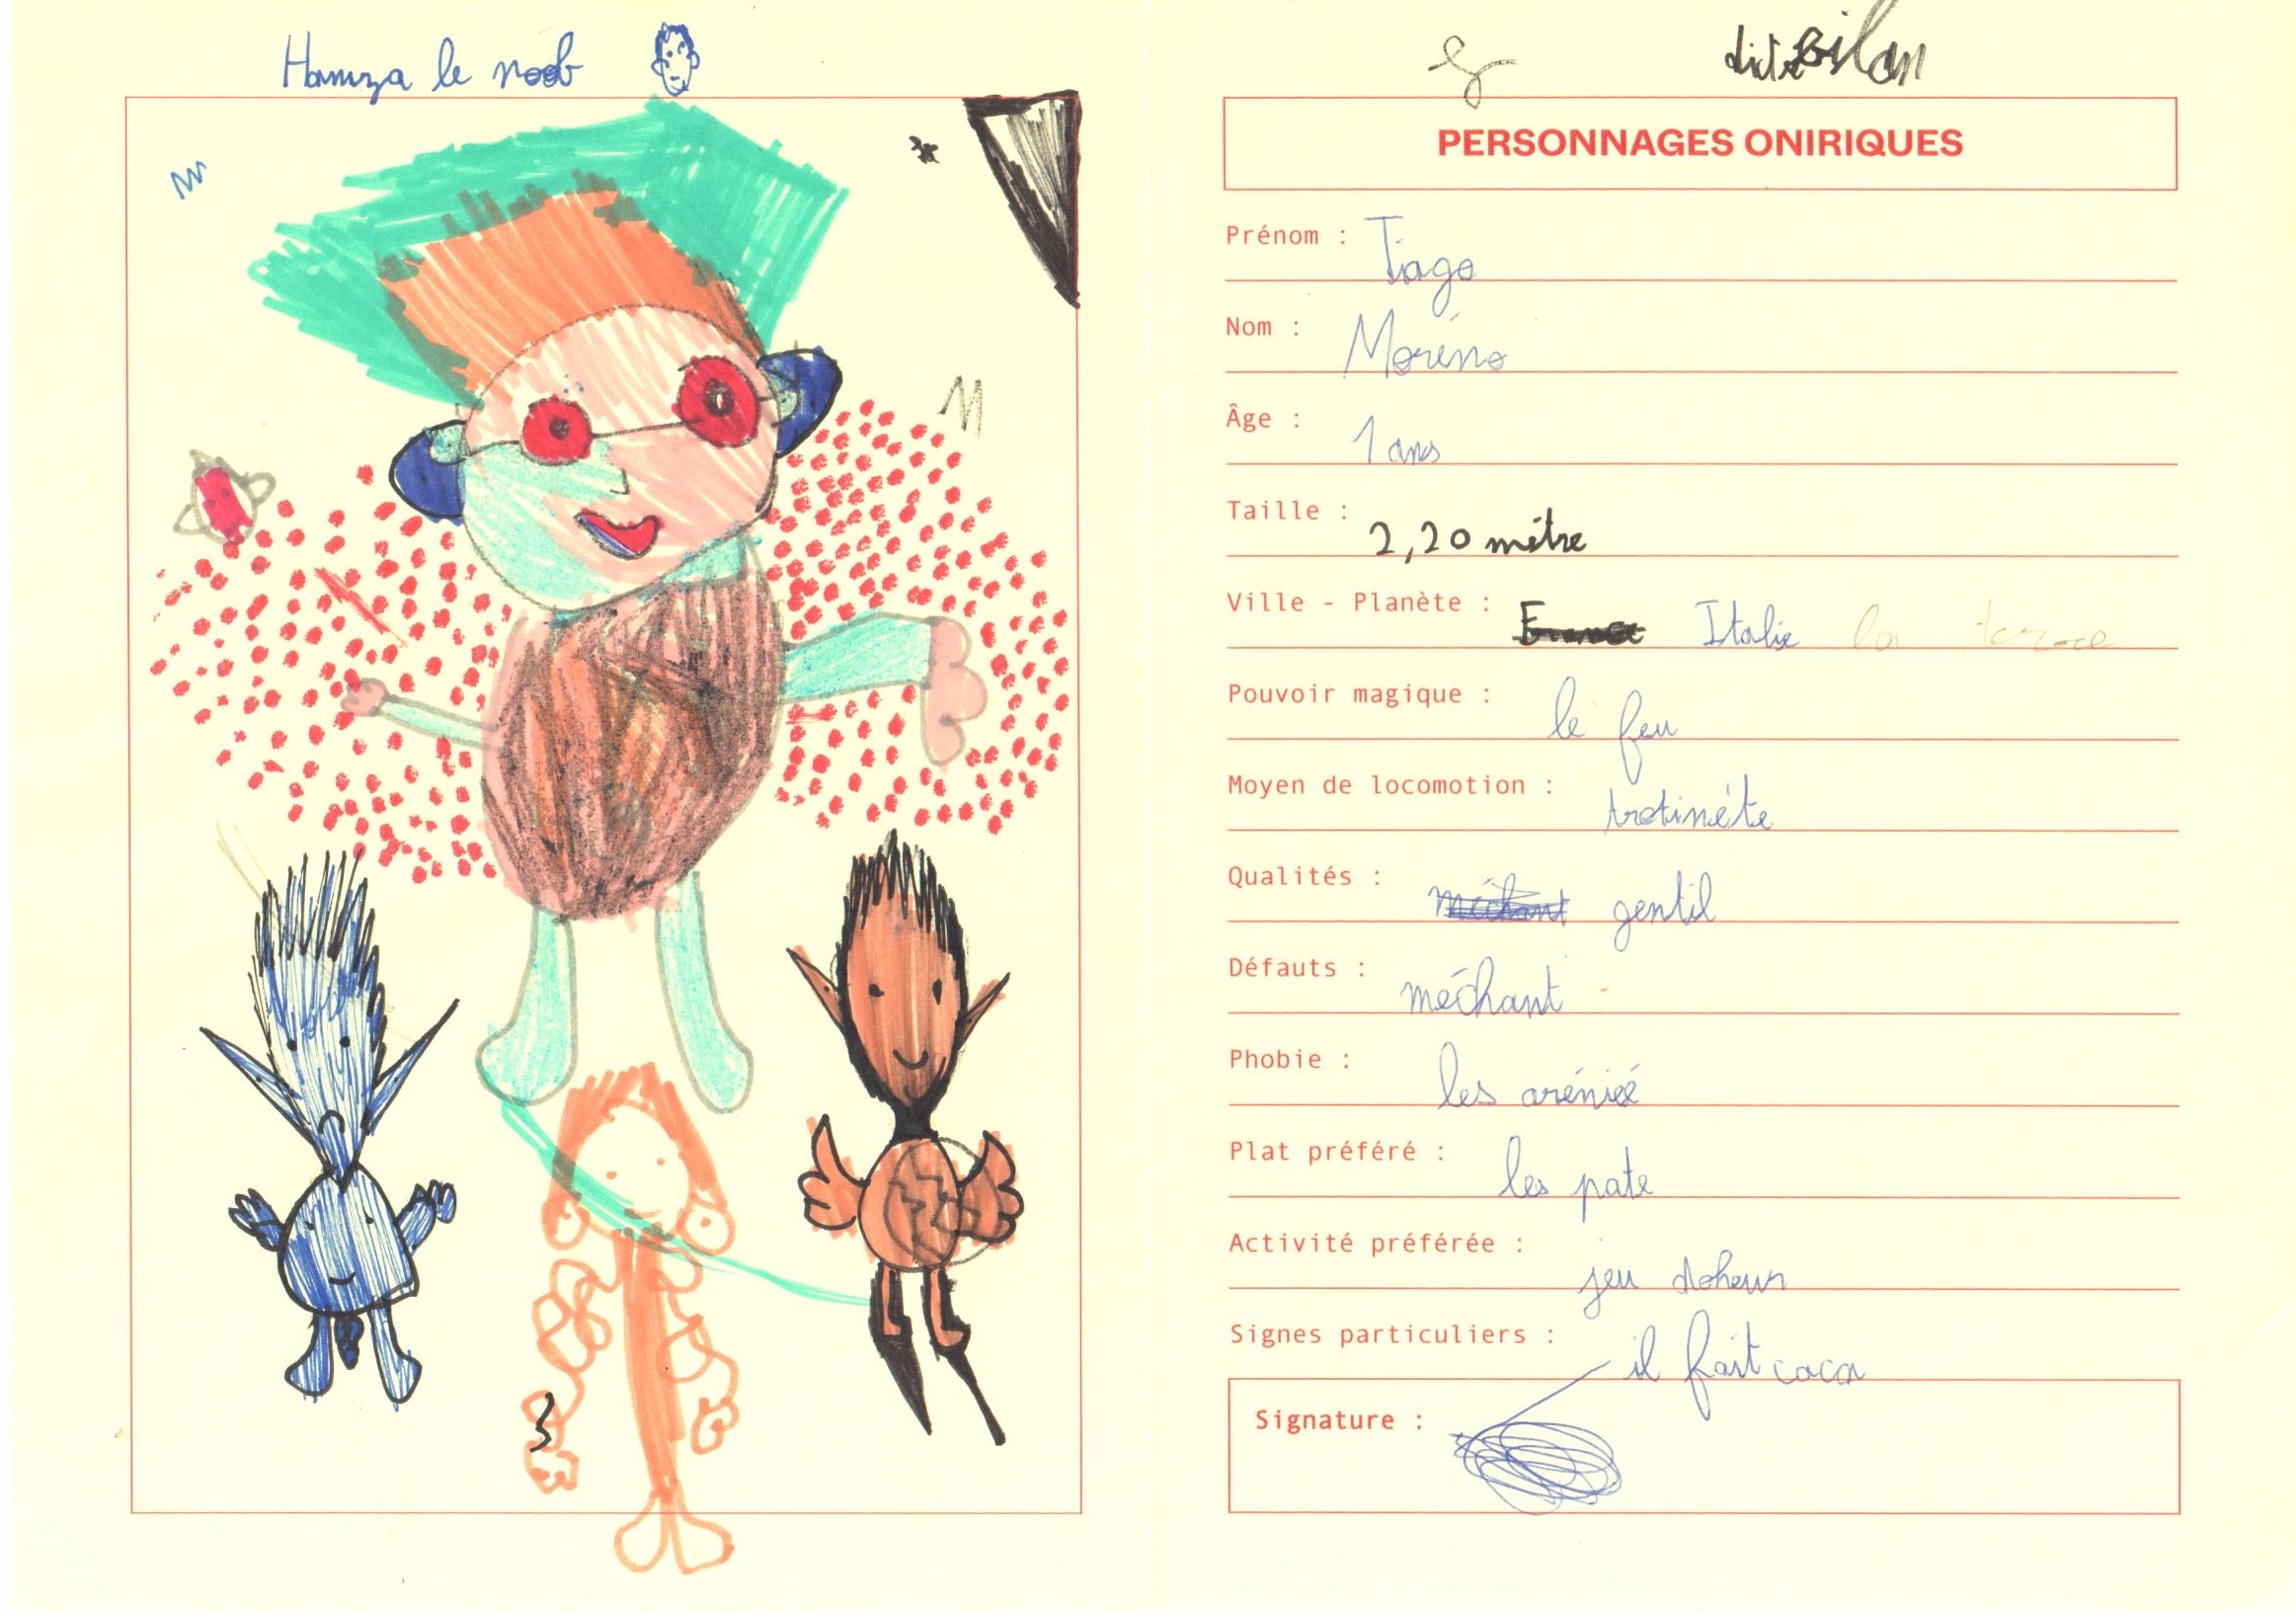 Hamza le noob
PERSONNAGES ONIRIQUES
Prénom : Tiago
Nom : Moréno
Âge : 1 ans
Taille : 2,20 mètre
Ville - Planète : Italie la terre
Pouvoir magique : le feu
Moyen de locomotion : trotinéte
Qualités : méchant gentil
Défauts : méchant
Phobie : les
Plat préféré : les pate
Activité préférée : jeu
Signes particuliers : il fait caca
Signature :